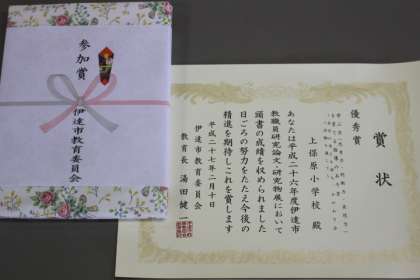 参加賞
伊達市教育委員会
賞状
優秀賞
上保原小学校 殿
あなたは平成二十六年度伊達市
教職員研究論文・研究物展において
頭書の成績を収められました
日ごろの努力をたたえ今後の
精進を期待しこれを賞します
平成二十七年二月十日
伊達市教育委員会
教育長 湯田健一